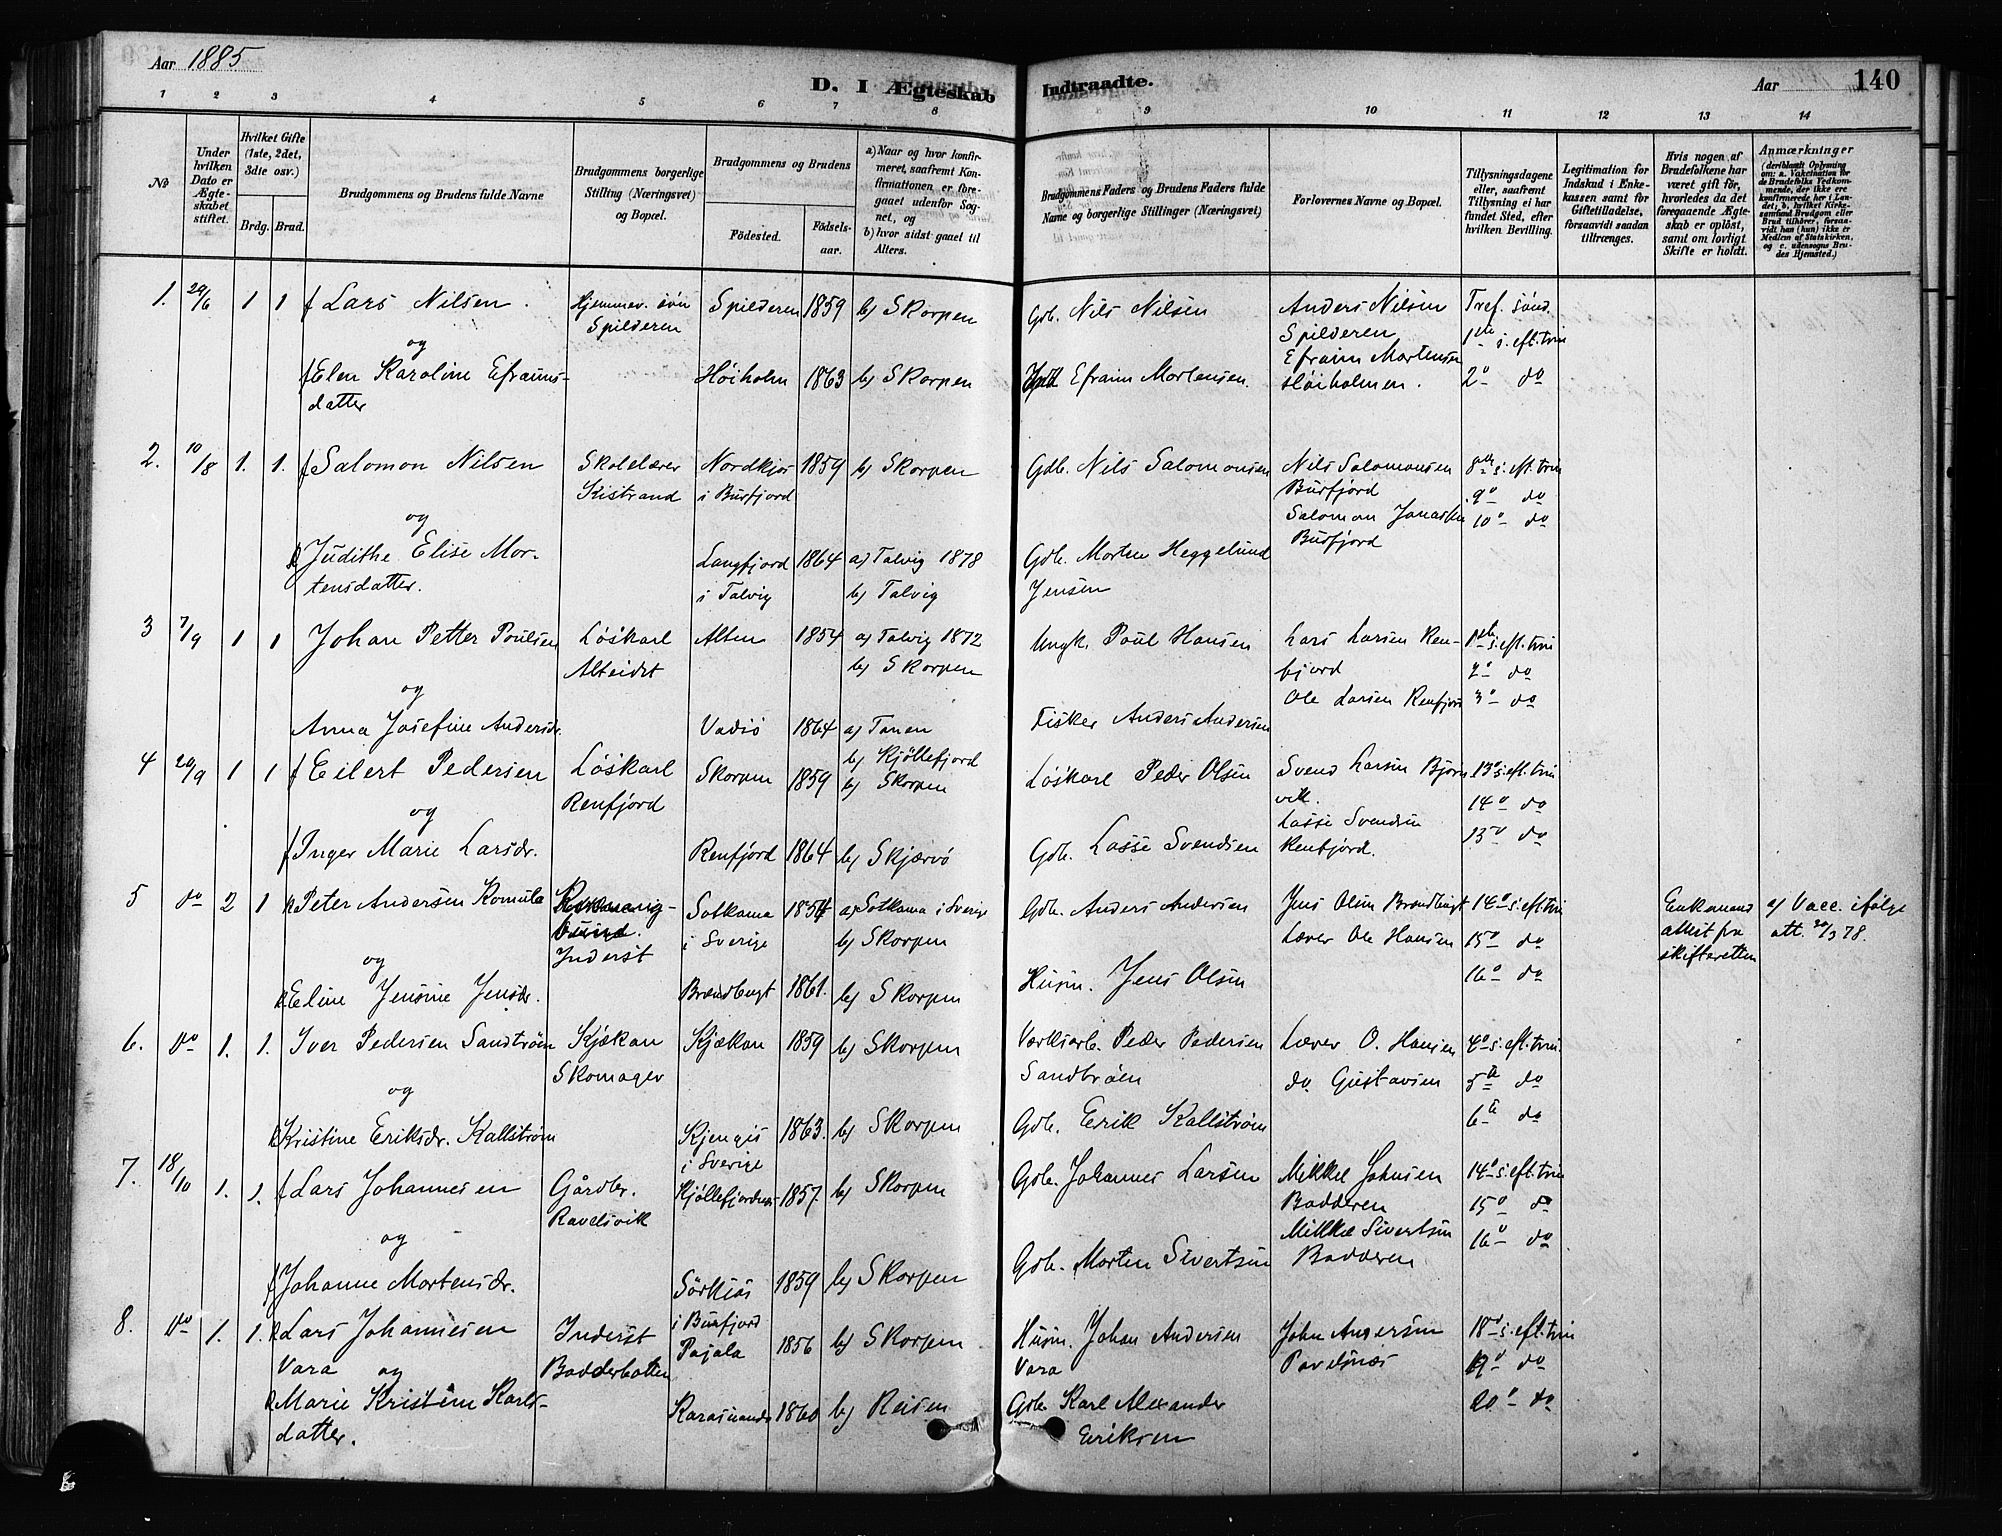 Aar 1885
D. I Ægteskab Indtraadte.
Aar 140
1 2 3 4 5 6 7 8 9 10 11 12 13 14
No
Under hvilken Dato er Ægteskabet stiftet.
Hvilket Gifte (1ste, 2det, 3die osv.)
Brdg. Brud.
Brudgommens og Brudens fulde Navne
Brudgommens borgerlige Stilling (Næringsvei) og Bopæl.
Brudgommens og Brudens
Födested. Födselsaar.
a) Naar og hvor konfirmeret, saafremt Konfirmationen er foregaaet udenfor Sognet, og
b) hvor sidst gaaet til Alters.
Brudgommens Faders og Brudens Faders fulde Navne og borgerlige Stillinger (Næringsvei)
Forlovernes Navne og Bopæl.
Tillysningsdagene eller, saafremt Tillysning ei har fundet Sted, efter hvilken Bevilling.
Legitimation for Indskud i Enkekassen samt for Giftetilladelse, forsaavidt saadan tiltrænges.
Hvis nogen af Brudefolkene har været gift för, hvorledes da det foregaaende Ægteskab er oplöst, samt om lovligt Skifte er holdt.
Anmærkninger
1. 29/6 1 1 f Lars Nilsen. Hjemmev. søn Spilderen 1859 b) Skorpen Gdb. Nils Nilsen Anders Nilsen Tref. sönd.
Spilderen Spilderen 1ste s. eft. trin
og
f Elen Karoline Efraims- Høiholm 1863 b) Skorpen Efraim Mortensen. Efraim Mortensen
datter Høiholmen. 2o do
2. 10/8 1. 1. f Salomon Nilsen Skolelærer Nordkjos 1859 b) Skorpen Gdb. Nils Salomonsen Nils Salomonsen 8de s. eft. trin
Kistrand i Burfjord Burfjord 9o do
og Salomon Jonassen 10o do
Judithe Elise Mor- Langfjord 1864 a) Talvig 1878 Gdb. Morten Heggelund Burfjord
tensdatter. i Talvig b) Talvig Jensen
3 7/9 1 1 Johan Petter Poulsen Löskarl Alten 1854 a) Talvig 1872 Ungk. Poul Hansen Lars Larsen Ren- 1ste s. eft. trin
Alteidet b) Skorpen fjord 2o do
og Ole Larsen Renfjord 3o do
Anna Josefine Andersdr. Vadsö 1864 a) Tanen Fisker Anders Andersen
b) Kjöllefjord
4 20/9 1 1 f Eilert Pedersen Löskarl Skorpen 1859 b) Skorpen Löskarl Peder Olsen Svend Larsen Bjørn- 13o s. eft. trin
Renfjord vik. 14o do
og Lasse Svendsen 15o do
f Inger Marie Larsdr. Renfjord 1864 b) Skjærvö Gdb. Lasse Svendsen Renfjord.
5 do 2 1 k Peter Andersen Komula Sotkama 1854 a) Sotkama i Sverige Gdb. Anders Andersen Jens Olsen Brandbugt 14o s. eft. trin Enkemand a) Vacc. ifölge
i Sverige b) Skorpen Lærer Ole Hansen 15o do attest fra att. 20/3 78.
og Inderst 16o do skifteretten
k Eline Jensine Jensdr. Brandbugt 1861. b) Skorpen Husm. Jens Olsen
6. do 1. 1. Iver Pedersen Sandström Kjækan Kjækan 1859 b) Skorpen Værksarb. Peder Pedersen Lærer O. Hansen 4o s. eft. trin.
Skomager Sandström do Gustavsen 5te do
og 6te do
k Kristine Eriksdr. Kallström Kjengis 1863. b) Skorpen Gdb. Erik Kallström
i Sverige
7. 18/10 1. 1. f Lars Johannesen Gårdbr. Kjöllefjordnes 1857. b) Skorpen Gdb. Johannes Larsen Mikkel Johnsen 14o s. eft. trin
Ravelsvik Badderen 15o do
og Mikkel Sivertsen 16o do
f Johanne Mortensdr. Sörkjos 1859 b) Skorpen Gdb. Morten Sivertsen Badderen
i Burfjord
8. do 1. 1. k Lars Johannesen Inderst Pajala 1856 b) Skorpen Husm. Johan Andersen John Andersen 18o s. eft. trin
Vara og Badderbotten Vara Pavelsnæs 19o do
k Marie Kristine Karls- 1860 b) Reisen Gdb. Karl Alexander 20o do
datter. Eriksen